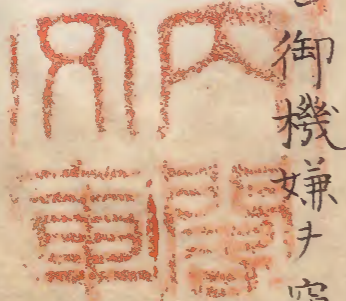 御機嫌ヲ
内閣
文庫